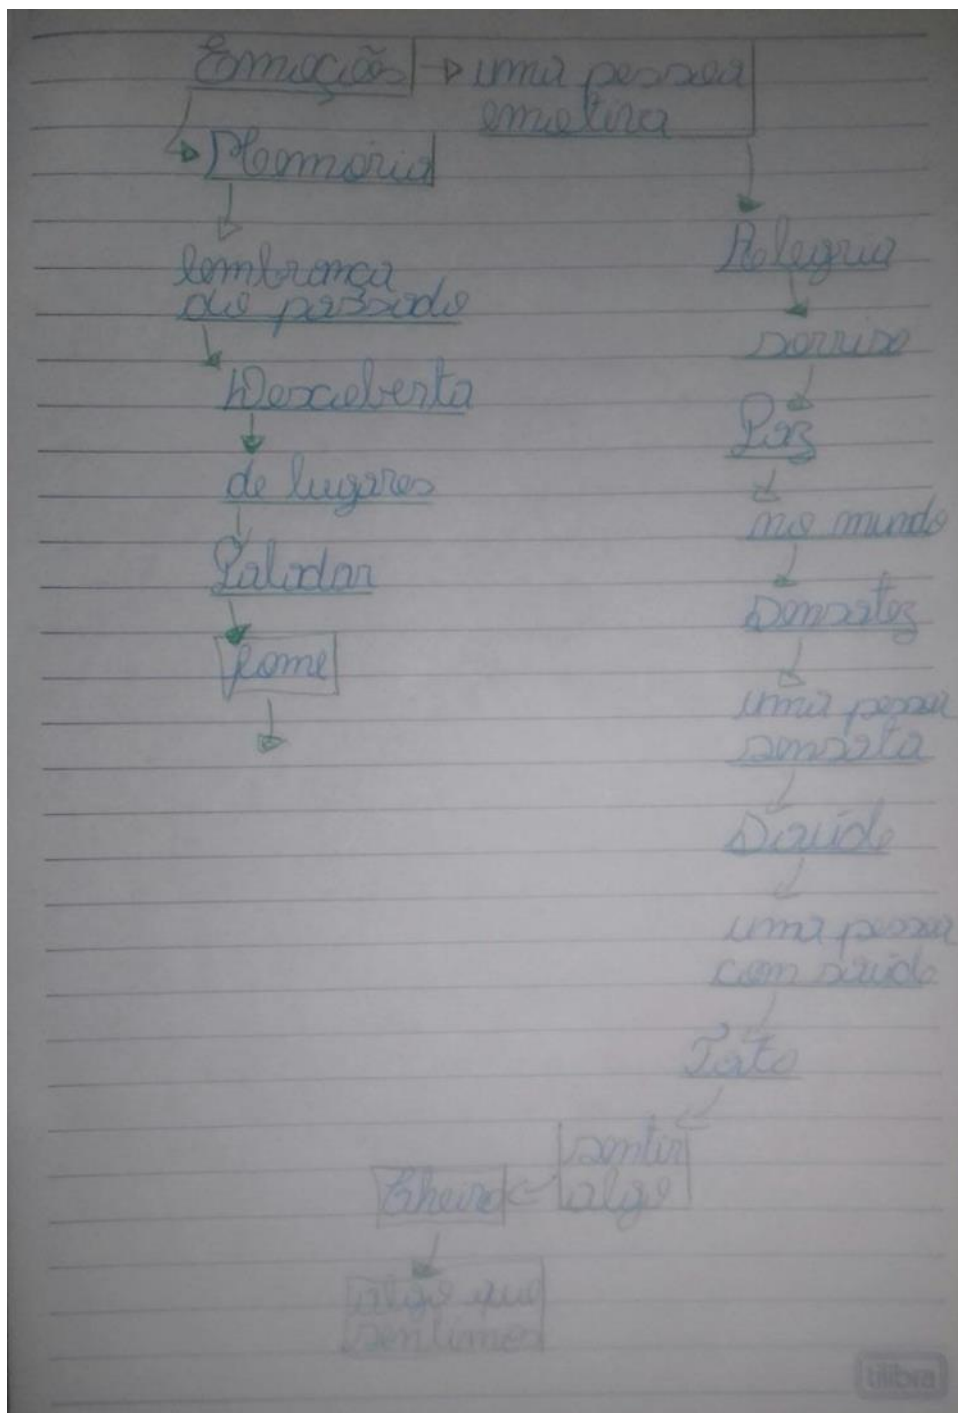 Emoções
uma pessoa
emotiva
Memória
lembrança
do passado
Descoberta
de lugares
Paladar
fome
Alegria
sorriso
Paz
no mundo
Sensatez
uma pessoa
sensata
Saúde
uma pessoa
com saúde
Tato
sentir
algo
Cheiro
algo que
sentimos
tilibra